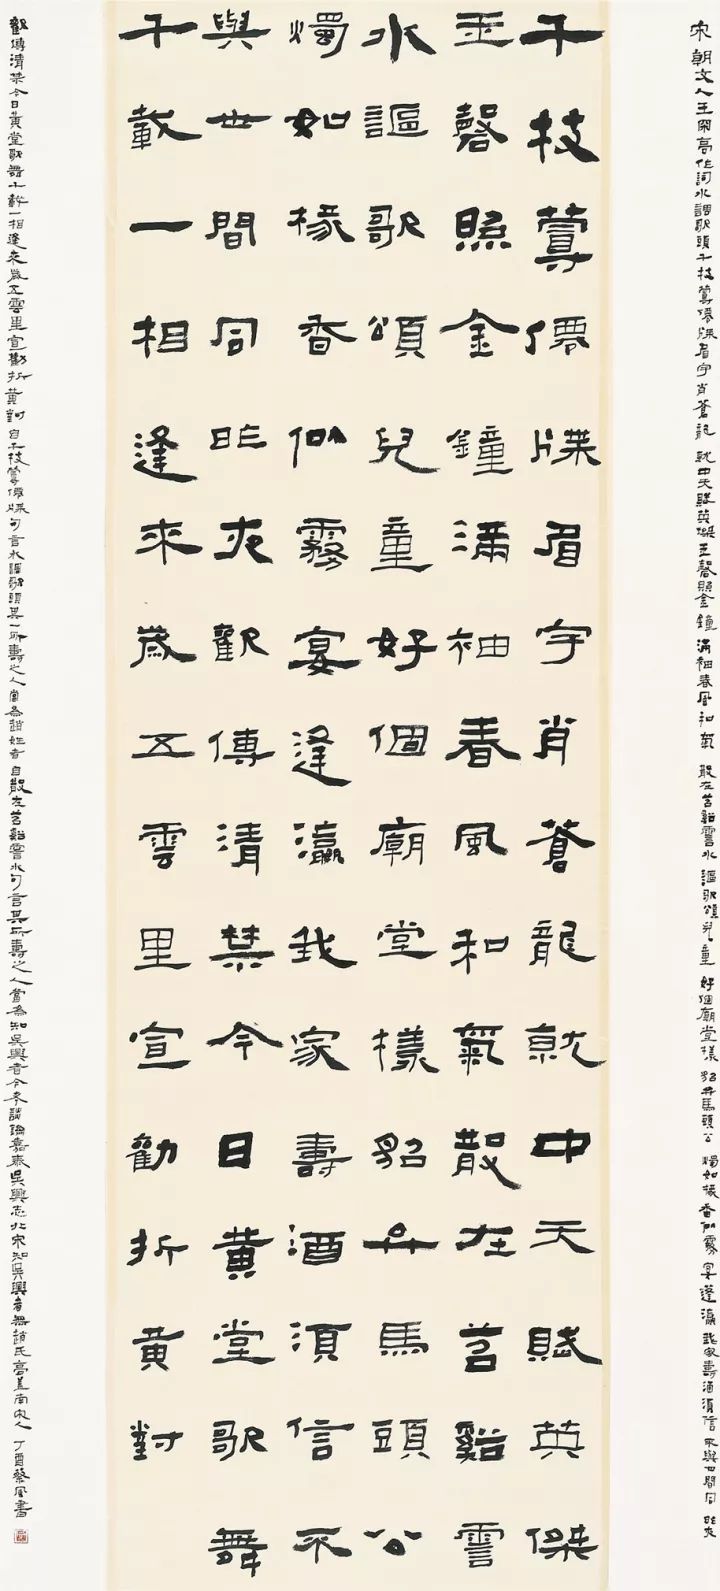 宋朝文人王罙高作詞水調歌頭千枝蕚僊牒眉宇肖蒼龍 就中天賦英傑玉磬照金鐘 滿袖春風和氣 散在苕谿霅水 謳歌頌兒童 好個廟堂樣 貂弁馬頭公 燭如椽香似霧 宴蓬瀛 我家壽酒須信不與世間同 昨夜
千枝蕚僊牒眉宇肖蒼龍就中天賦英傑
玉磬照金鐘滿袖春風和氣散在苕谿霅
水謳歌頌兒童好個廟堂樣貂弁馬頭公
燭如椽香似霧宴逢瀛我家壽酒須信不
與世間同昨夜觀傳清禁今日黃堂歌舞
千載一相逢來歲五雲里宣勸折黃封
觀傳清禁今日黃堂歌舞千載一相逢來歲五雲里宣勸折黃封 自千枝蕚僊牒句言水調歌頭其一所壽之人當為趙姓者自散在苕谿霅水句言其所壽之人當為知吳興者今考談鑰嘉泰吳興志北宋知吳興者無趙氏高蓋南宋人 丁酉蔡風書